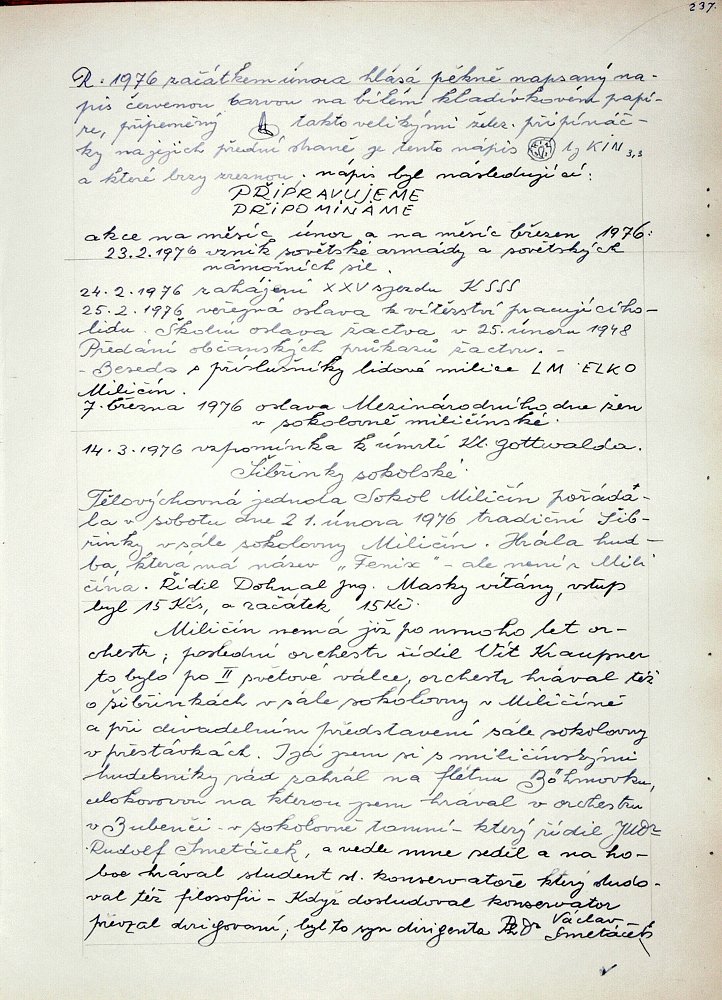 237.
R. 1976 začátkem února hlásá pěkně napsaný ná-
pis červenou barvou na bílém kladívkovém papí-
ře, připeměný takto velikými želez. připínáč-
ky na jejich přední straně je tento nápis tz KIN 3,3
a které brzy zreznou. nápis byl následující:
PŘIPRAVUJEME
PŘIPOMÍNÁME
akce na měsíc únor a na měsíc březen 1976:
23.2.1976 vznik sovětské armády a sovětských
námořních sil.
24.2.1976 zahájení XXV sjezdu KSSS
25.2.1976 veřejná oslava k vítězství pracujícího
lidu. Školní oslava žactva v 25. únoru 1948
Předání občanských průkazů žactvu. -
- Beseda s příslušníky lidové milice LM ELKO
Miličín.
7. března 1976 oslava Mezinárodního dne žen
v sokolovně miličínské.
14.3.1976 vzpomínka k úmrtí Kl. Gottwalda.
Šibřinky sokolské
Tělovýchovná jednota Sokol Miličín pořáda-
la v sobotu dne 21. února 1976 tradiční Šib-
řinky v sále sokolovny Miličín. Hrála hud-
ba, která má název "Fenix" - ale není z Mili
čína. Řídil Dohnal Ing. Masky vítány, vstup
byl 15 Kčs, a začátek 15 Kč.
Miličín nemá již po mnoho let or-
chestr; poslední orchestr řídil Vít Kraupner
to bylo po II světové válce, orchestr hrával též
o šibřinkách v sále sokolovny v Miličíně
a při divadelním představení sále sokolovny
v přestávkách. I já jsem si s miličínskými
hudebníky rád zahrál na flétnu Böhmovku,
celokovovou na kterou jsem hrával v orchestru
v Bubenči - v sokolovně tamní - který řídil JUDr
Rudolf Smetáček, a vedle mne seděl a na ho-
boe hrával student st. konservatoře který studo-
val též filosofii - Když dostudoval konservator
převzal dirigování; byl to syn dirigenta PhDr Václav
Smetáček